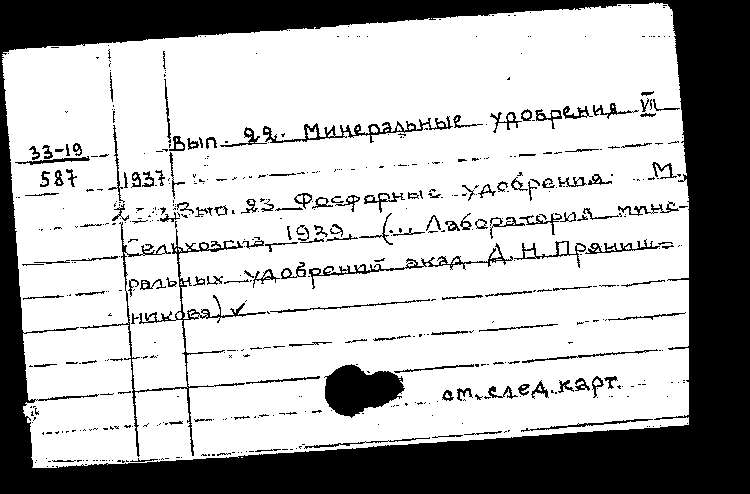 Вып. 22. Минеральные удобрения VII
33-19
587 1937
Вып. 23. Фосфорные удобрения. М.,
Сельхозгиз, 1939. (... Лаборатория мине-
ральных удобрений акад. Д. Н. Пряниш-
никова) ✓
см. след. карт.